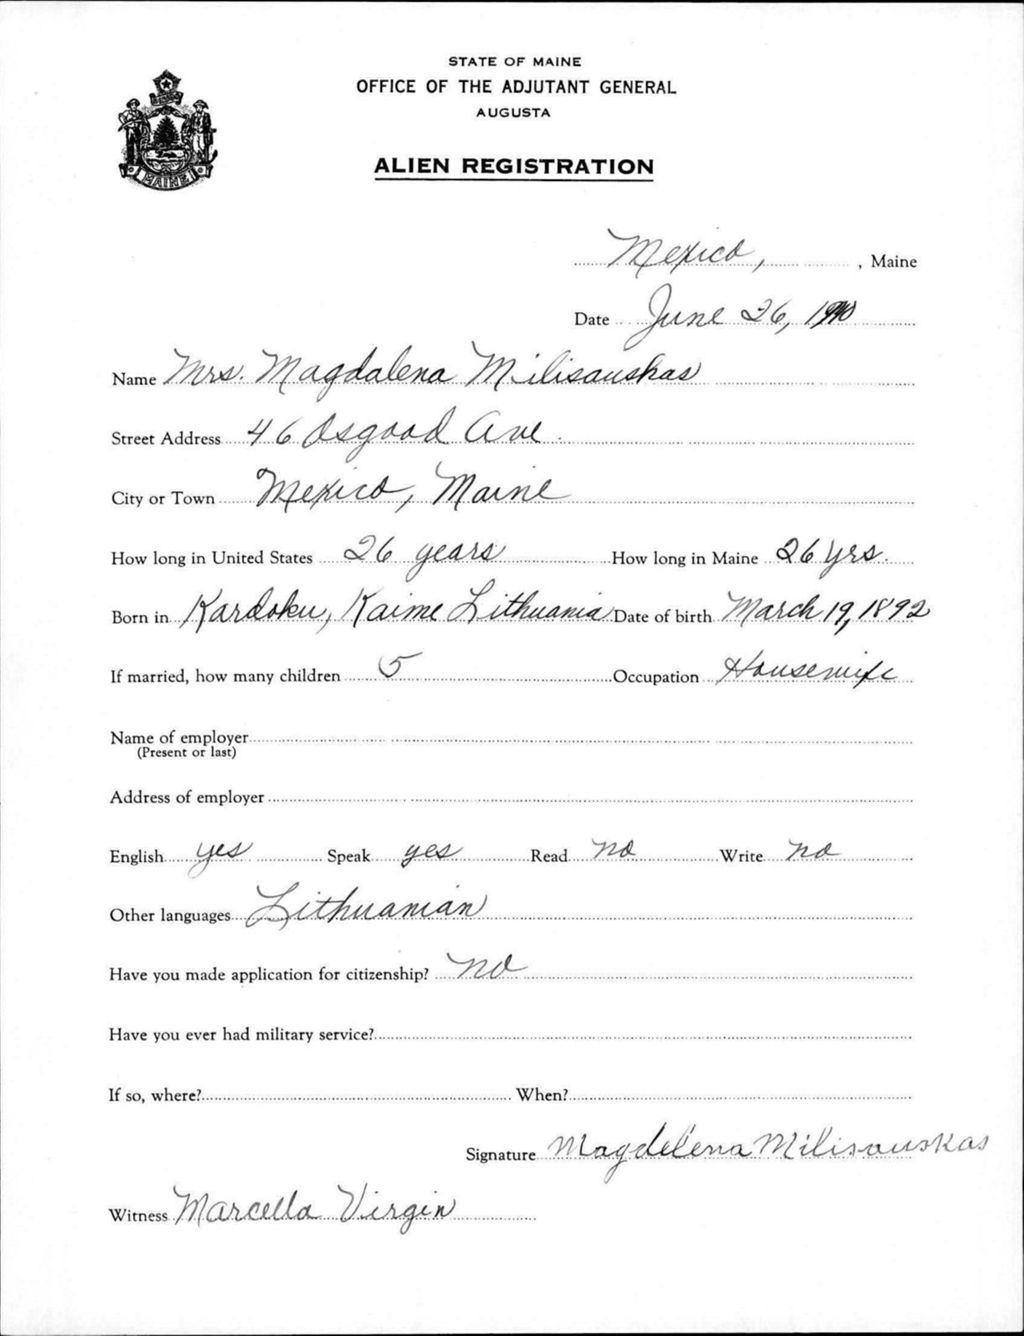 STATE OF MAINE
OFFICE OF THE ADJUTANT GENERAL
AUGUSTA
ALIEN REGISTRATION
MAINE
Mexico, , Maine
Date June 26, 1940
Name Mrs. Magdalena Milisauskas
Street Address 46 Osgood Ave.
City or Town Mexico, Maine
How long in United States 26 years How long in Maine 26 yrs.
Born in Kardoku, Kaime Lithuania Date of birth March 19, 1892
If married, how many children 5 Occupation Housewife
Name of employer
(Present or last)
Address of employer
English yes Speak yes Read no Write no
Other languages Lithuanian
Have you made application for citizenship? no
Have you ever had military service?
If so, where? When?
Signature Magdelena Milisauskas
Witness Marcella Virgin